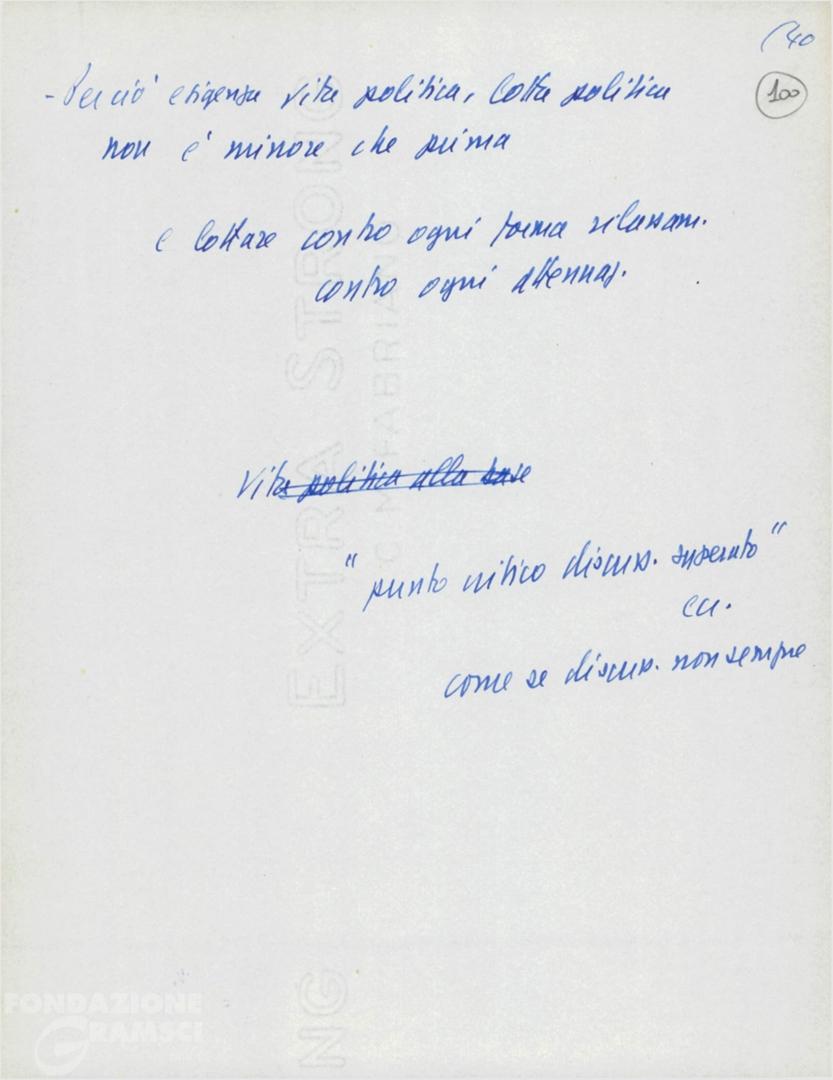 (40
100
- Perciò esigenza vita politica, lotta politica
non è minore che prima
e lottare contro ogni forma rilassam.
contro ogni attenuaz.
Vita politica alla base
"punto critico discuss. superato"
ecc.
come se discuss. non sempre
EXTRA STRONG
C.M. FABRIANO
NG
FONDAZIONE
GRAMSCI